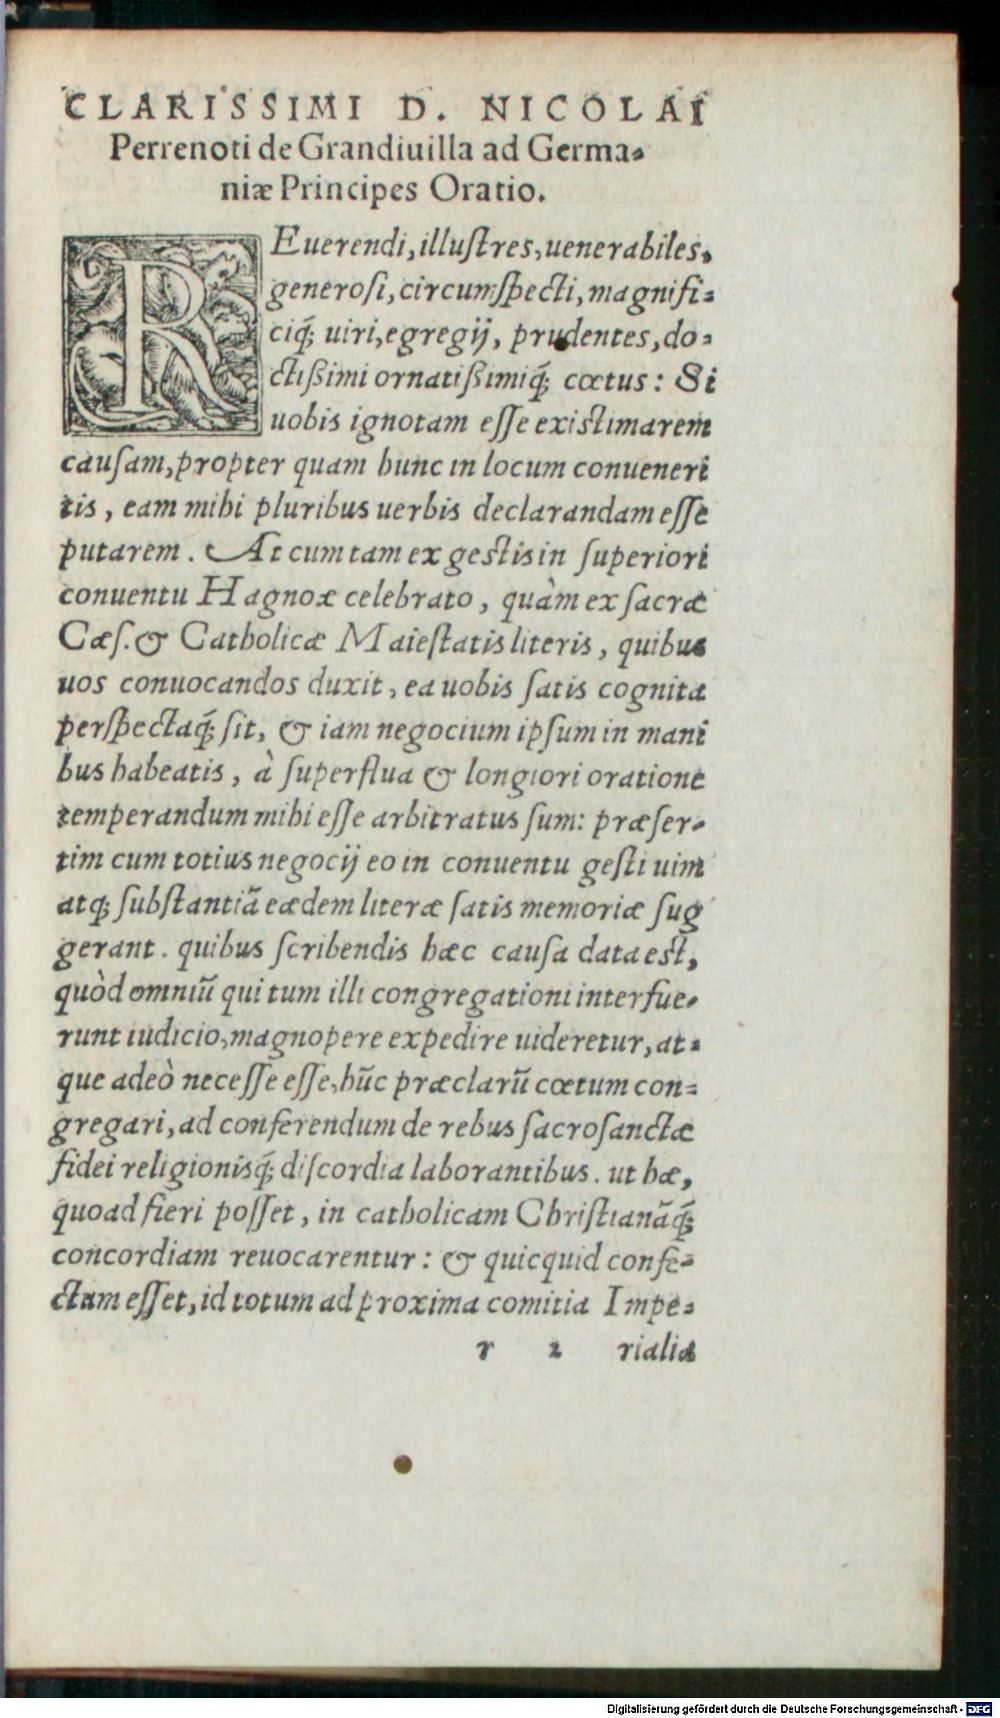 CLARISSIMI D. NICOLAI
Perrenoti de Grandiuilla ad Germa-
niæ Principes Oratio.
REuerendi, illuſtres, uenerabiles,
generoſi, circumſpecti, magnifi-
ciq́; uiri, egregij, prudentes, do-
ctißimi ornatißimiq́; cœtus: Si
uobis ignotam eſſe exiſtimarem
cauſam, propter quam hunc in locum conueneri
tis, eam mihi pluribus uerbis declarandam eſſe
putarem. At cum tam ex geſtis in ſuperiori
conuentu Hagnoæ celebrato, quàm ex ſacræ
Cæſ. & Catholicæ Maieſtatis literis, quibus
uos conuocandos duxit, ea uobis ſatis cognita
perſpectaq́; ſit, & iam negocium ipſum in mani
bus habeatis, à ſuperflua & longiori oratione
temperandum mihi eſſe arbitratus ſum: præſer-
tim cum totius negocij eo in conuentu geſti uim
atq; ſubſtantiã eædem literæ ſatis memoriæ ſug
gerant. quibus ſcribendis hæc cauſa data eſt,
quòd omniũ qui tum illi congregationi interfue-
runt iudicio, magnopere expedire uideretur, at-
que adeò neceſſe eſſe, hũc præclarũ cœtum con-
gregari, ad conferendum de rebus ſacroſanctæ
fidei religionisq́; diſcordia laborantibus. ut hæ,
quoad fieri poſſet, in catholicam Chriſtianãq́;
concordiam reuocarentur: & quicquid confe-
ctum eſſet, id totum ad proxima comitia Impe-
r 2 rialia
Digitalisierung gefördert durch die Deutsche Forschungsgemeinschaft - DFG